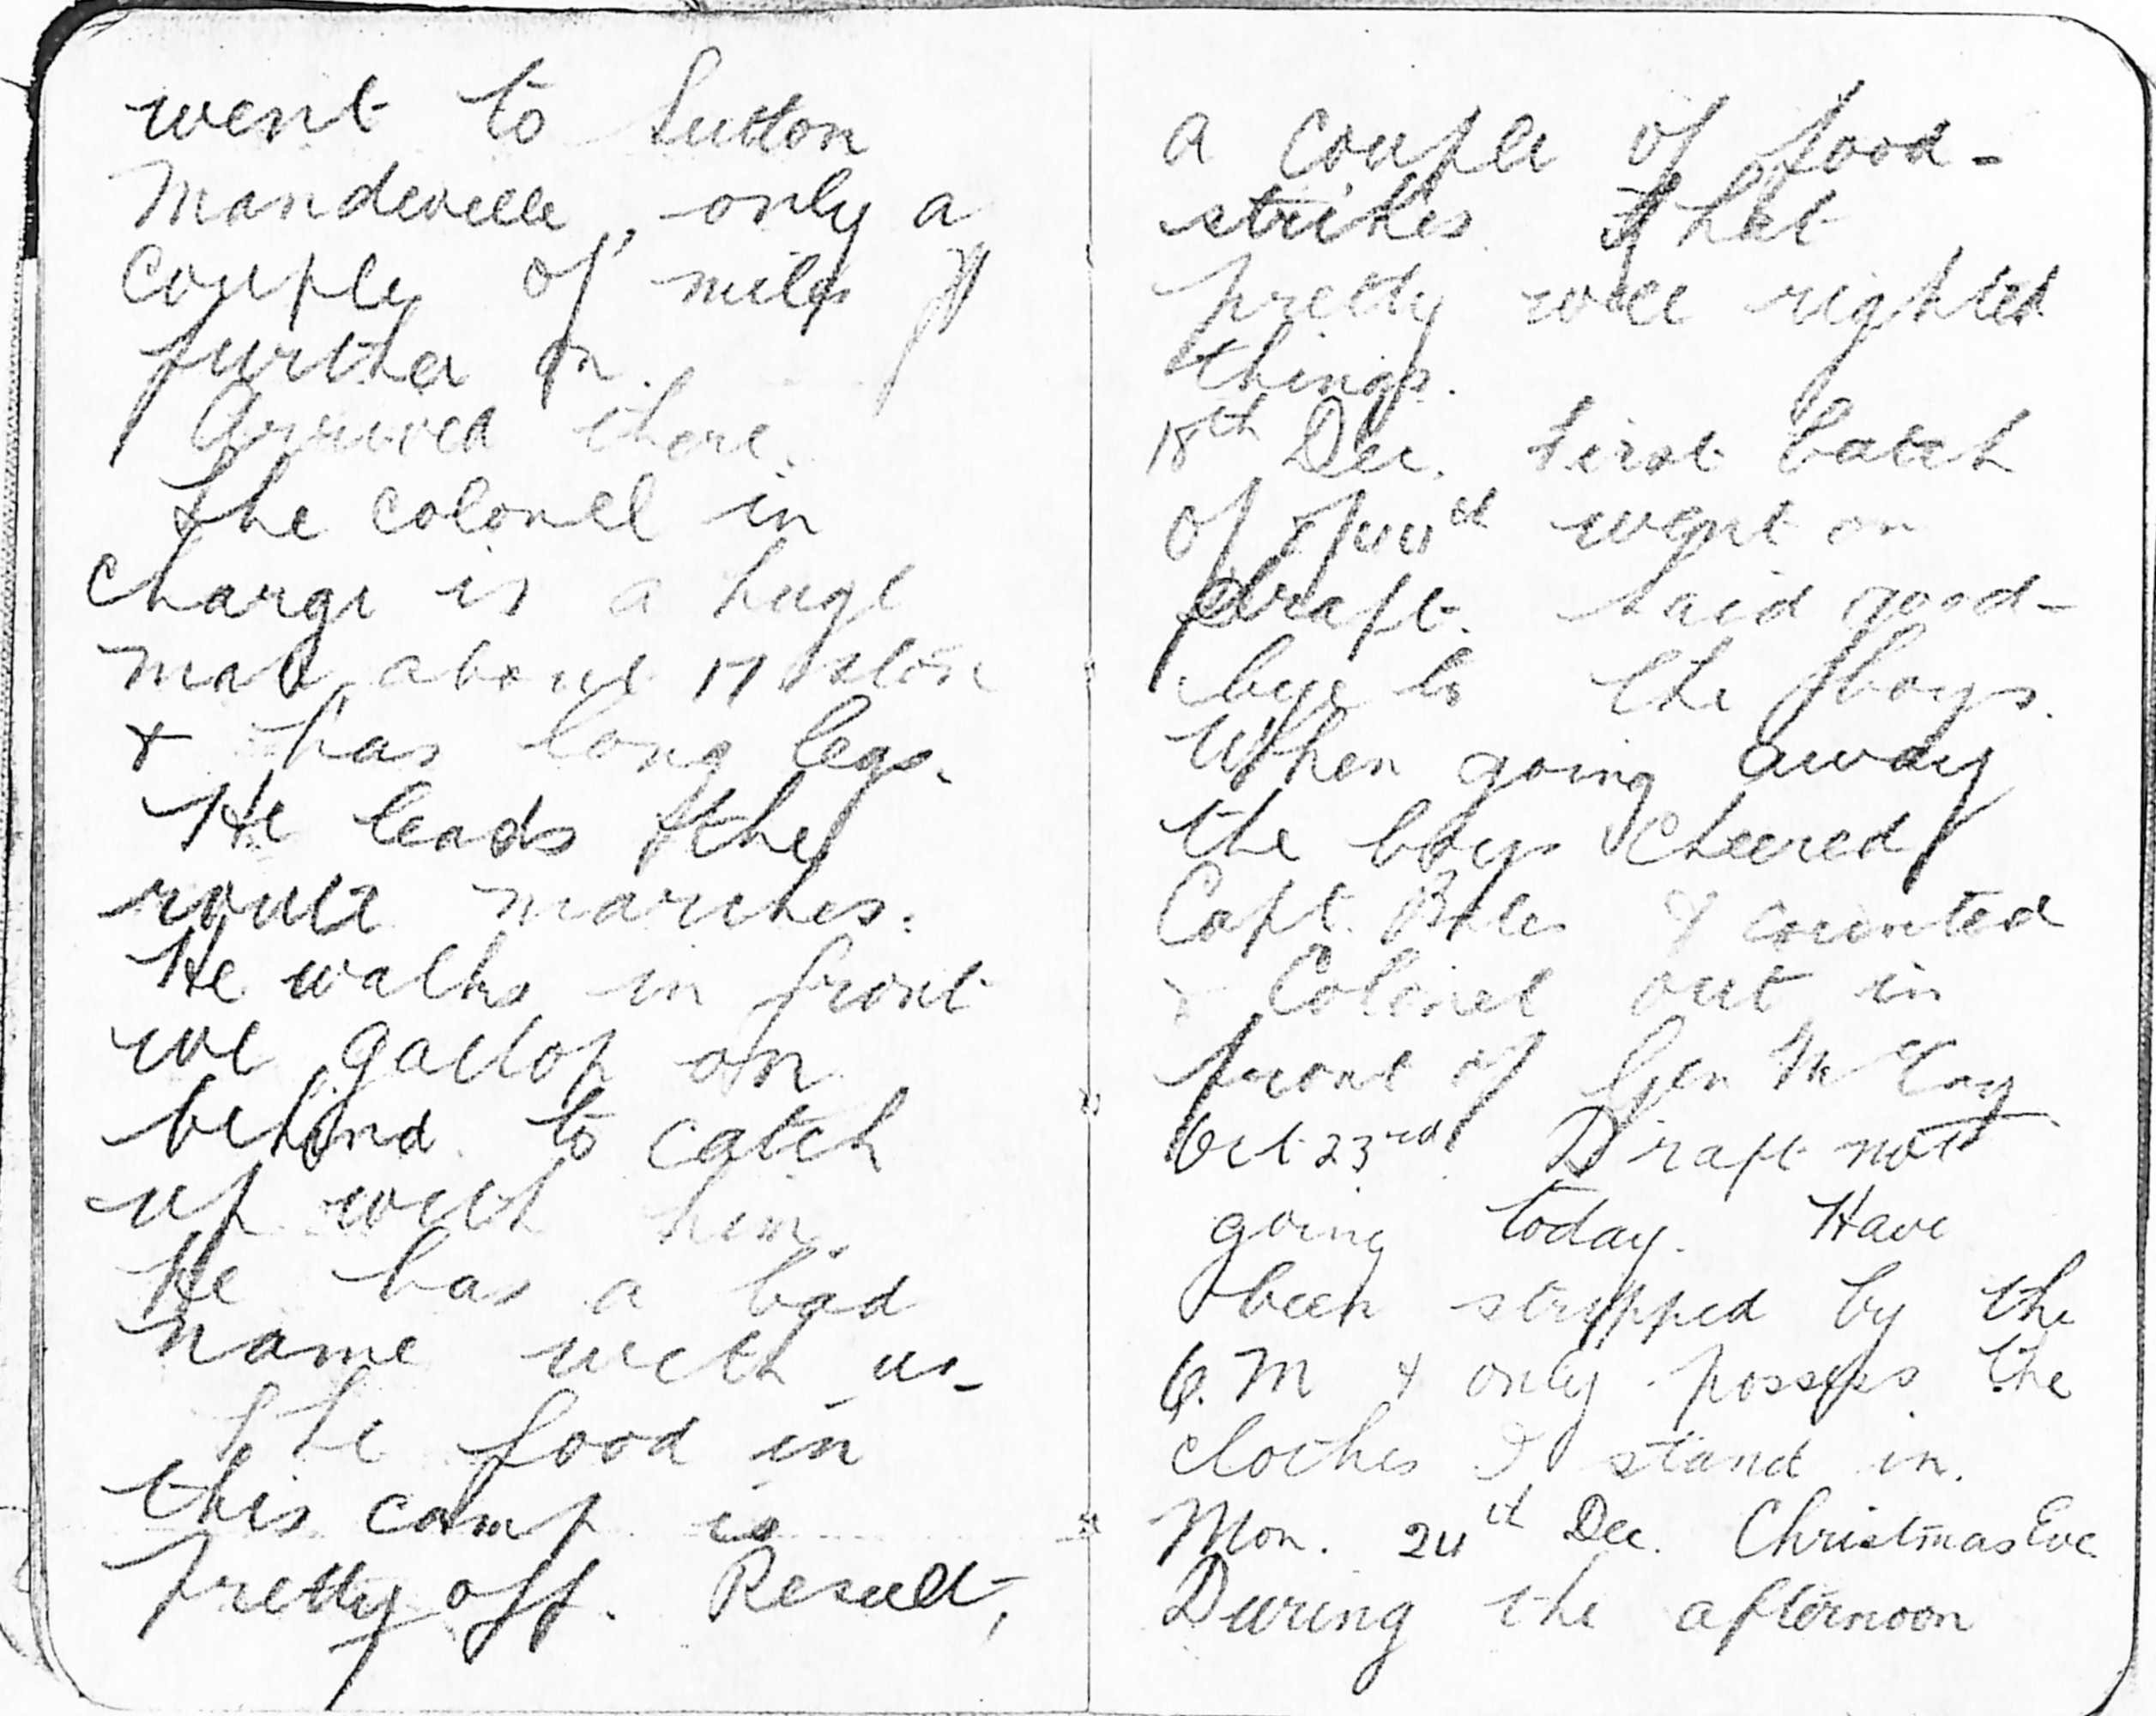 went to Sutton
Mandeville, only a
couple of miles
further on.
Arrived there.
The colonel in
charge is a huge
man about 17 stone
& has long legs.
He leads the
route marches.
He walks in front
we gallop on
behind to catch
up with him.
He has a bad
name with us.
The food in
this camp is
pretty off. Result,
a couple of food-
strikes. That
pretty well righted
things.
18th Dec. First batch
of 44th went on
draft. Said good-
bye to the boys.
When going away
the boys cheered
Capt. & counted
& Colonel out in
front of Gen McCay
Oct 23rd Draft not
going today. Have
been stripped by the
Q.M & only possess the
clothes I stand in.
Mon. 24th Dec. Christmas Eve.
During the afternoon